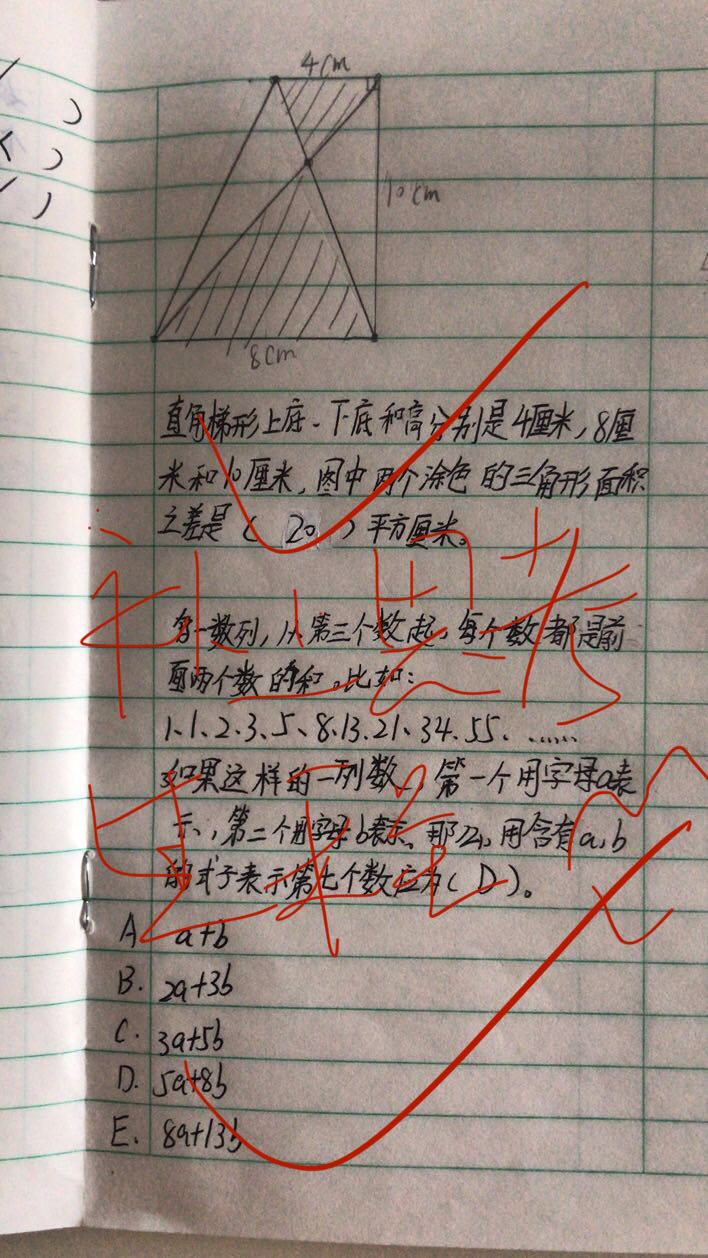 4cm
10cm
8cm
直角梯形上底、下底和高分别是4厘米,8厘
米和10厘米,图中两个涂色的三角形面积
之差是( 20 )平方厘米。
有一数列,从第三个数起,每个数都是前
面两个数的和。比如:
1、1、2、3、5、8、13、21、34、55、……
如果这样的一列数,第一个用字母a表
示,第二个用字母b表示、那么,用含有a,b
的式子表示第七个数应为(D)。
A a+b
B. 2a+3b
C. 3a+5b
D. 5a+8b
E. 8a+13b